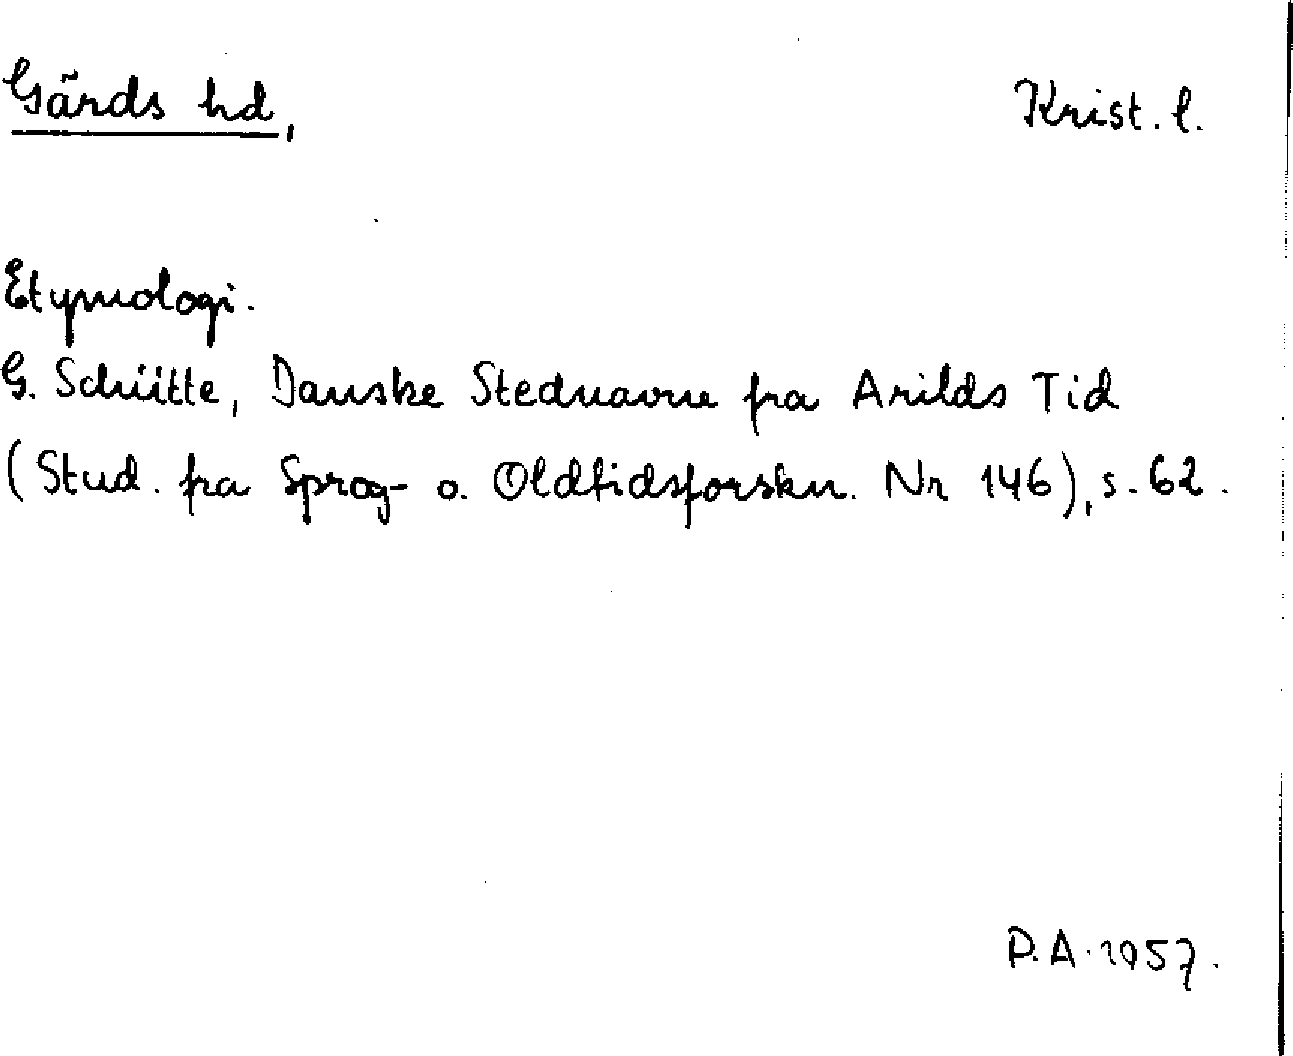 Gärds hd, Krist. l.
Etymologi.
G. Schütte, Danske Stednavne fra Arilds Tid
(Stud. fra Sprog- o. Oldtidsforskn. Nr 146), s. 62.
P.A. 1957.